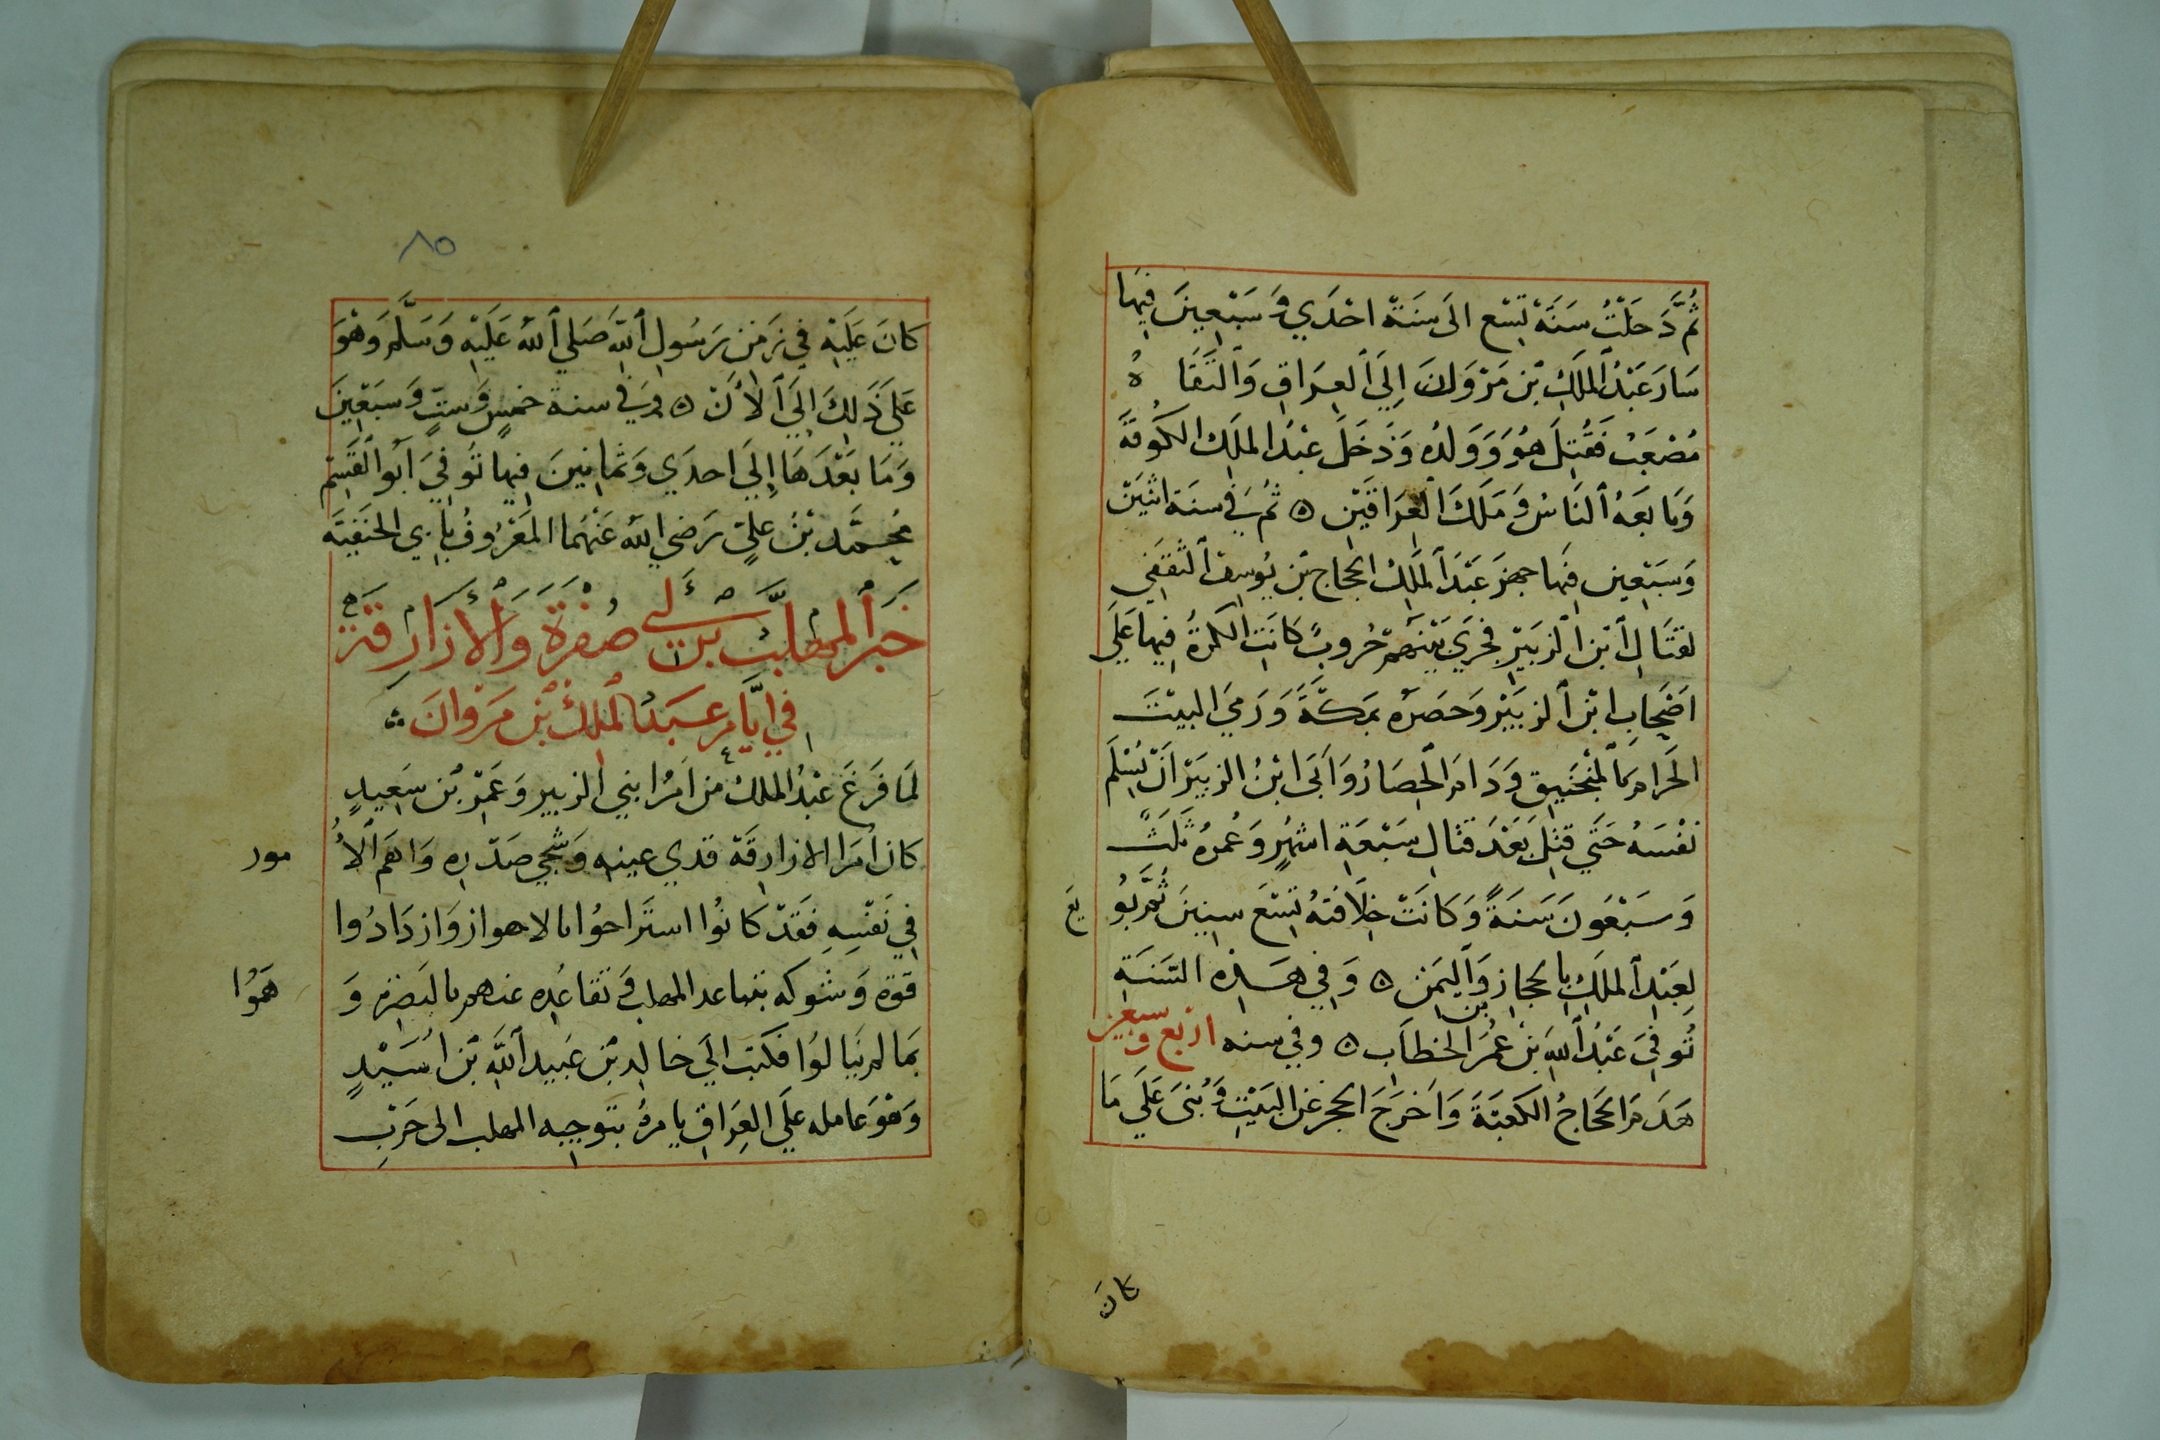 ثُمَّ دَخَلَتْ سَنَة تِسْع الى سَنَة احْدَي وَ سَبْعِينَ فِيهَا
سَارَ عَبْدُ الملَكِ بْن مَرْوَانَ إِلَي العِرَاقِ وَالتَقَاهُ
مُصْعَبْ فَقُتِلَ هُوَ وَوَلدُه وَدَخَلَ عَبْدُ الملَك الكُوفَةَ
وَبَايعَهُ النَاسُ وَمَلَكَ العِرَاقَيْنِ ه ثُمَّ فِي سنَة اثنَين
وَسَبْعِين فِيهَا جهزَ عَبْدَ الملَك الحجاج بْن يُوسِف الثَقَفِي
لقتَالِ ابْن الزبَيْرِ فجَرَي بَيْنَهمْ حُروبٌ كَانَت الكرةُ فِيهاَ عَلَي
اصْحَابِ ابْن الزبَيْر وَحَصَرَه بمَكَّةَ وَرَميَ البيْتَ
الحَرامَ بالمنْجَنِيقِ وَدَامَ الحِصَارُ وَابَى ابْنُ الزبَيْر اَنْ يُسْلِم
نَفْسَهُ حَتَي قتِلَ بَعْدَ قتَالِ سَبْعَةِ اشهُرٍ وَعُمرهُ ثَلَثٌ
وَسَبْعُونَ سَنَةً وَكَانَتْ خِلَافتهُ تِسْعَ سِنِينَ ثُمَّ بُو
يَعَ
لِعَبْدِ الملَكِ بالحجَازِ وَاليَمَنِ ه وَفِي هَذِه السَنَةِ
تُوفيَ عَبْدُ اللهِ بْن عُمَرَ بن الخطاَب ه وفي سنه اربع وسبعين
هَدَمَ الحَجاجُ الكَعْبَةَ وَاَخرَجَ الحجرَ عَنِ البَيْتِ وَبُنىَ عَلَي مَا
كانَ
٨٥
كانَ عَلَيْهِ فِي زَمَنِ رَسُولِ اللهِ صَلي اللهُ عَلَيْهِ وَسَلَّمَ وَهْوَ
عَلَي ذَلِكَ اِلَي الاَنْ ه وَفي سنة خمسٍ وَستٍ وَسَبْعِينَ
وَمَا بَعْدَهَا إِلَي احدَي وَثمانِينَ فِيها تُوفِيَ اَبُو القَسِم
مُحَمَّد بْنُ عَلِيّ رَضي اللهُ عَنْهُما المَعْرُوفُ بابي الحَنَفِيَّه
خَبَرُ المهلَّب بْن اَبي صُفْرَة وَالأَزَارِقَة
في ايَّامِ عَبَد الملِكِ بْنِ مَرْوَانَ
لمَا فَرَغَ عَبْدُ الملك من اَمْرِ ابني الزبير وَعَمْرِ بْن سَعِيدٍ
كانَ اَمْرَ الازارِقَة قدي عينه وَشَجي صَدْره وَاهَم الأُ
مور
فِي نَفْسِهِ فقَدْ كَانُوا استَراحُوا بالاهواز وَازدَادُوا
قوة وَشوكه بتباعد المهلب وَتقاعُدِه عنهم بالبَصْرة وَ
هَمُّوا
بمَا لم يَنَالوُا فكَتبَ الَي خَالدِ بْن عَبيد اللهِ بْن اُسَيْدٍ
وَهْوَ عامله علَي العِرَاقِ يامرهُ بتوجِيه المهلب الى حَرْبِ